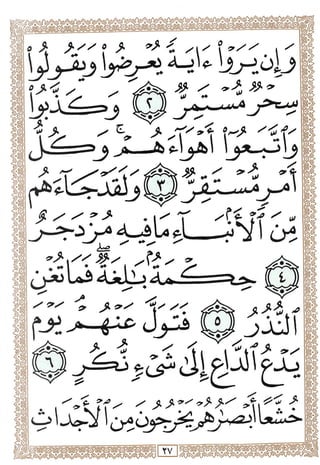 وَإِن يَرَوْا۟ ءَايَةً يُعْرِضُوا۟ وَيَقُولُوا۟
سِحْرٌ مُّسْتَمِرٌّ ٢ وَكَذَّبُوا۟
وَٱتَّبَعُوٓا۟ أَهْوَآءَهُمْ ۚ وَكُلُّ
أَمْرٍ مُّسْتَقِرٌّ ٣ وَلَقَدْ جَآءَهُم
مِّنَ ٱلْأَنۢبَآءِ مَا فِيهِ مُزْدَجَرٌ
٤ حِكْمَةٌۢ بَٰلِغَةٌ ۖ فَمَا تُغْنِ
ٱلنُّذُرُ ٥ فَتَوَلَّ عَنْهُمْ ۘ يَوْمَ
يَدْعُ ٱلدَّاعِ إِلَىٰ شَىْءٍ نُّكُرٍ ٦
خُشَّعًا أَبْصَٰرُهُمْ يَخْرُجُونَ مِنَ ٱلْأَجْدَاثِ
٢٧